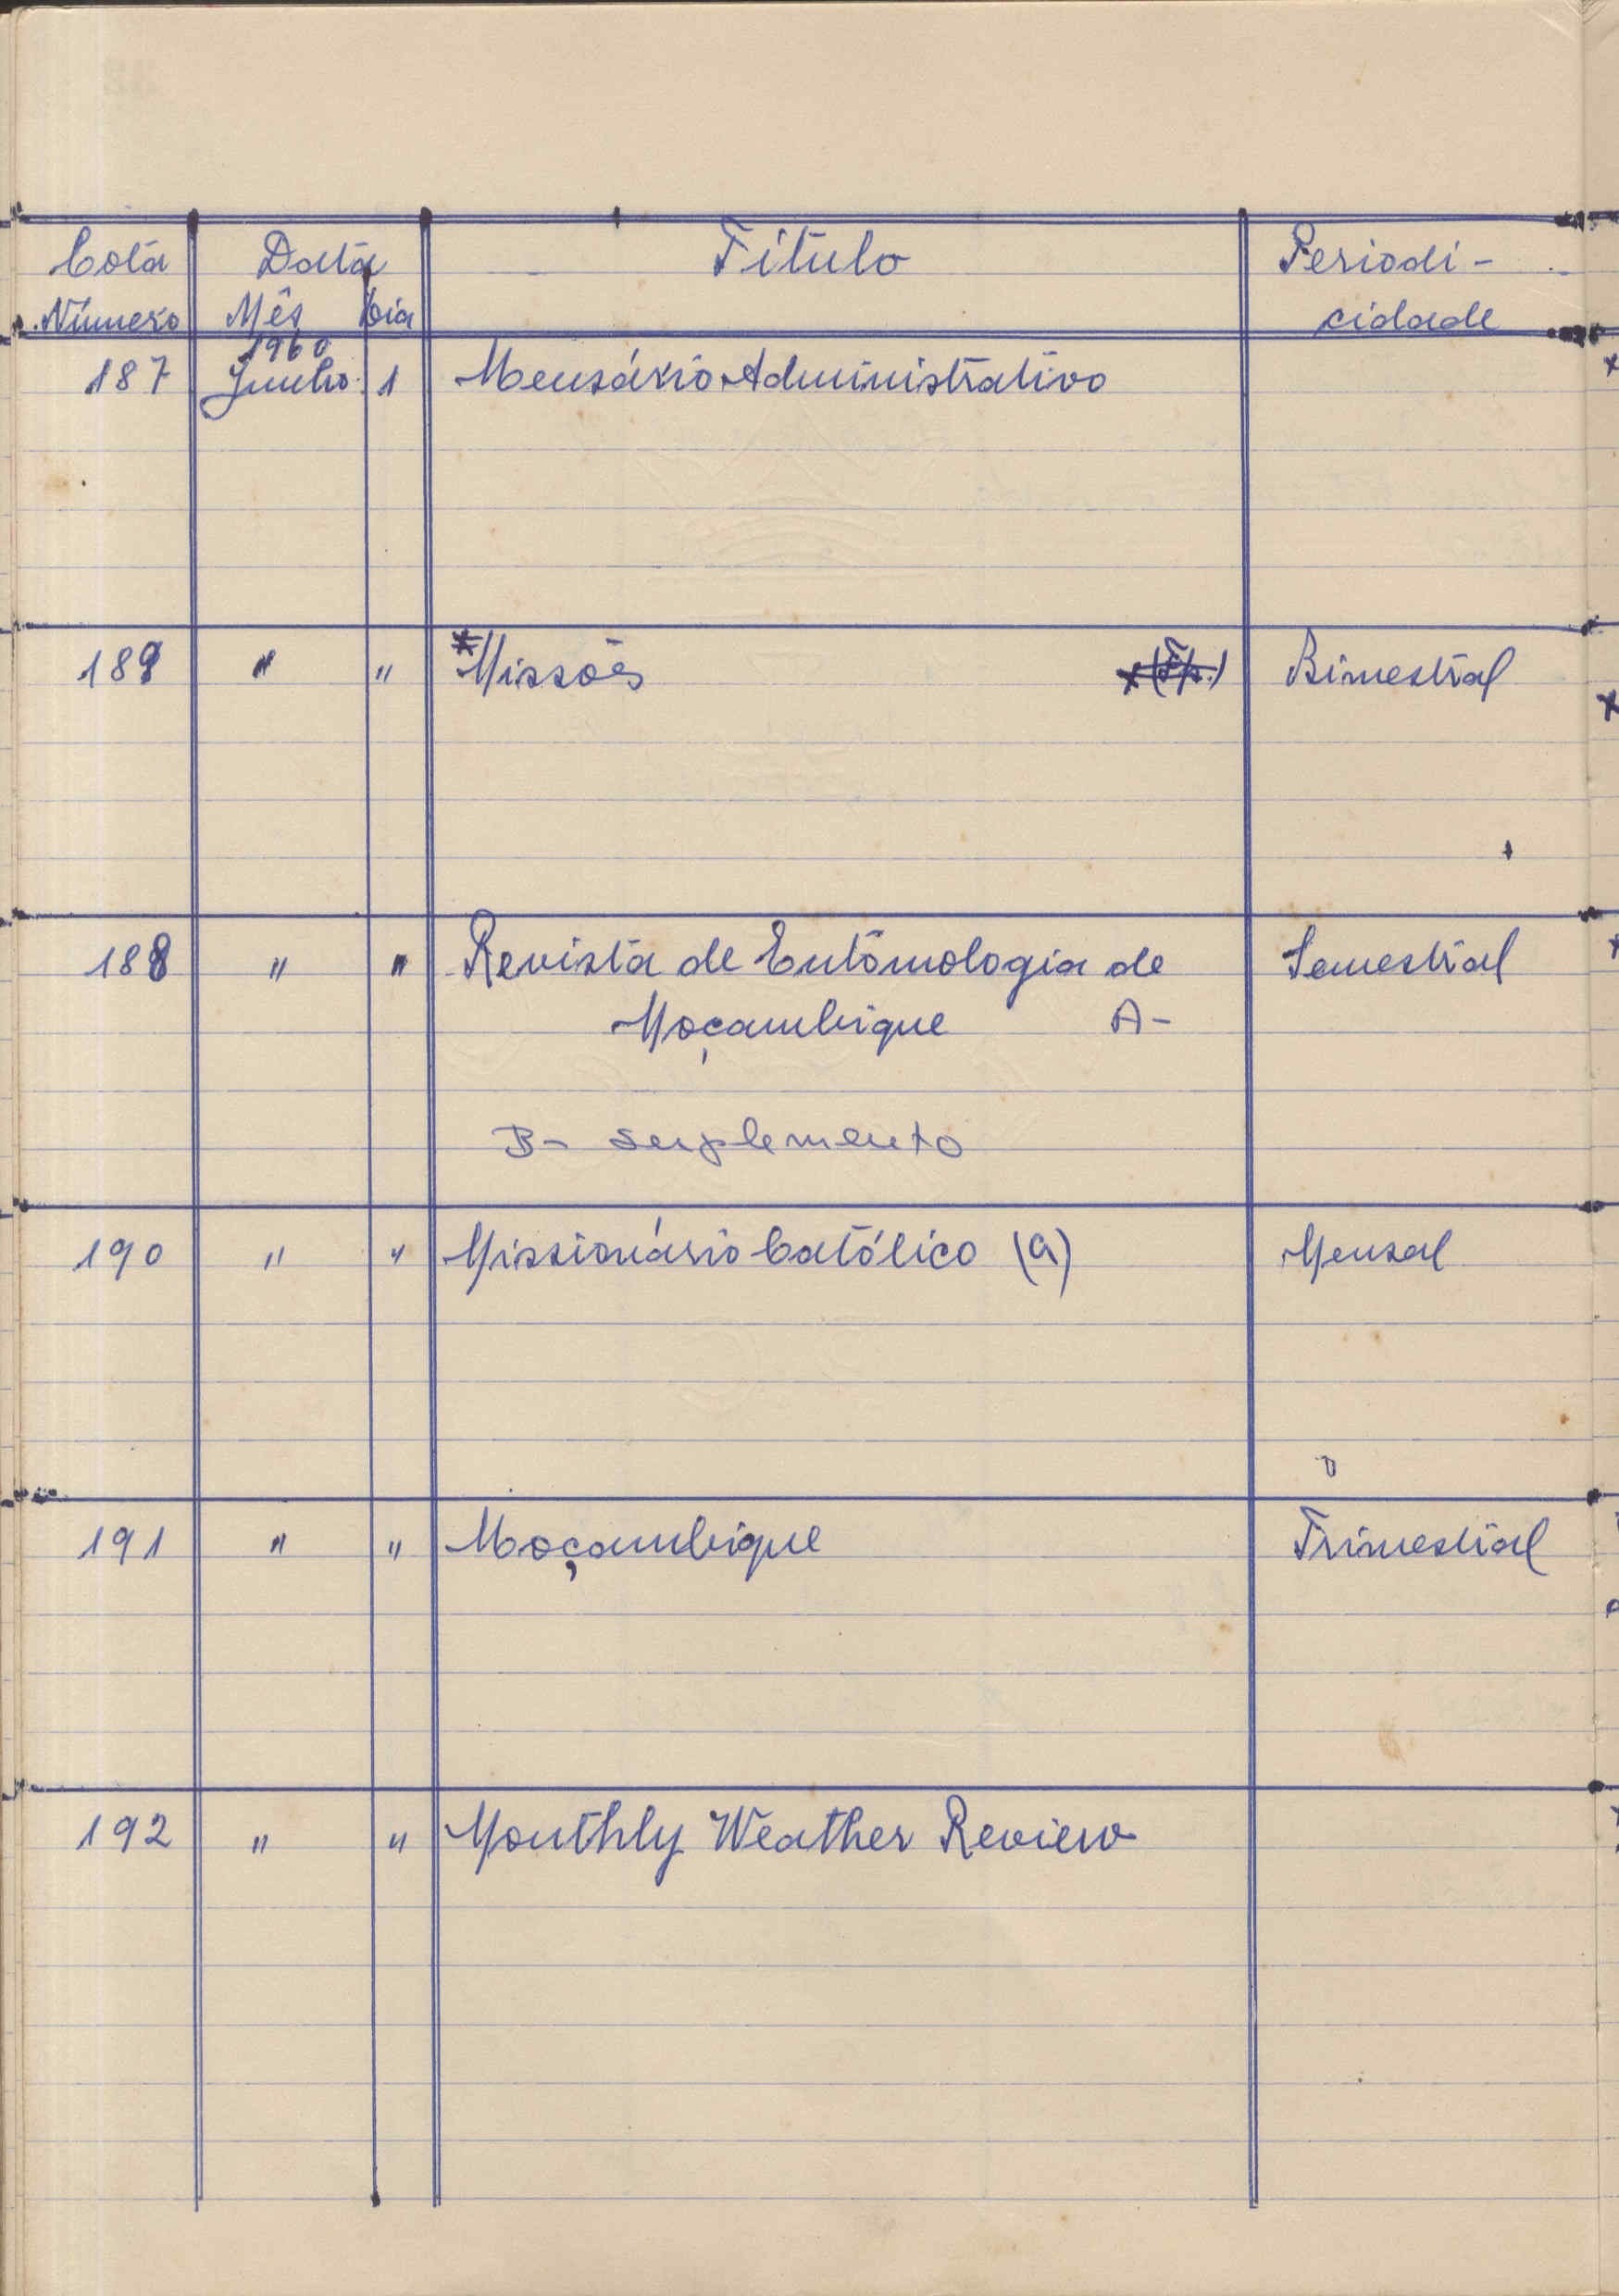 Cota Data Título Periodi-
Número Mês Dia cidade
1960
187 Junho 1 Mensário Administrativo
189 " " *Missões Bimestral
188 " " Revista de Entomologia de Semestral
Moçambique A-
B- Suplemento
190 " " Missionário Católico (a) Mensal
191 " " Moçambique Trimestral
192 " " Monthly Weather Review